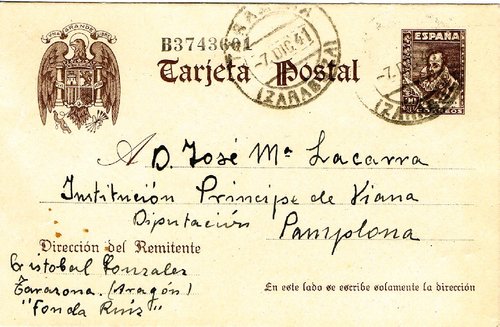 UNA GRANDE LIBRE
B3743601
Tarjeta Postal
TARAZONA
-7.DIC.41
(ZARAGOZA)
ESPAÑA
CORREOS
A D. José Mª Lacarra
Institución Principe de Viana
Diputación
Pamplona
Dirección del Remitente
Cristobal Gonzalez
Tarazona. (Aragón)
"Fonda Ruiz"
En este lado se escribe solamente la dirección